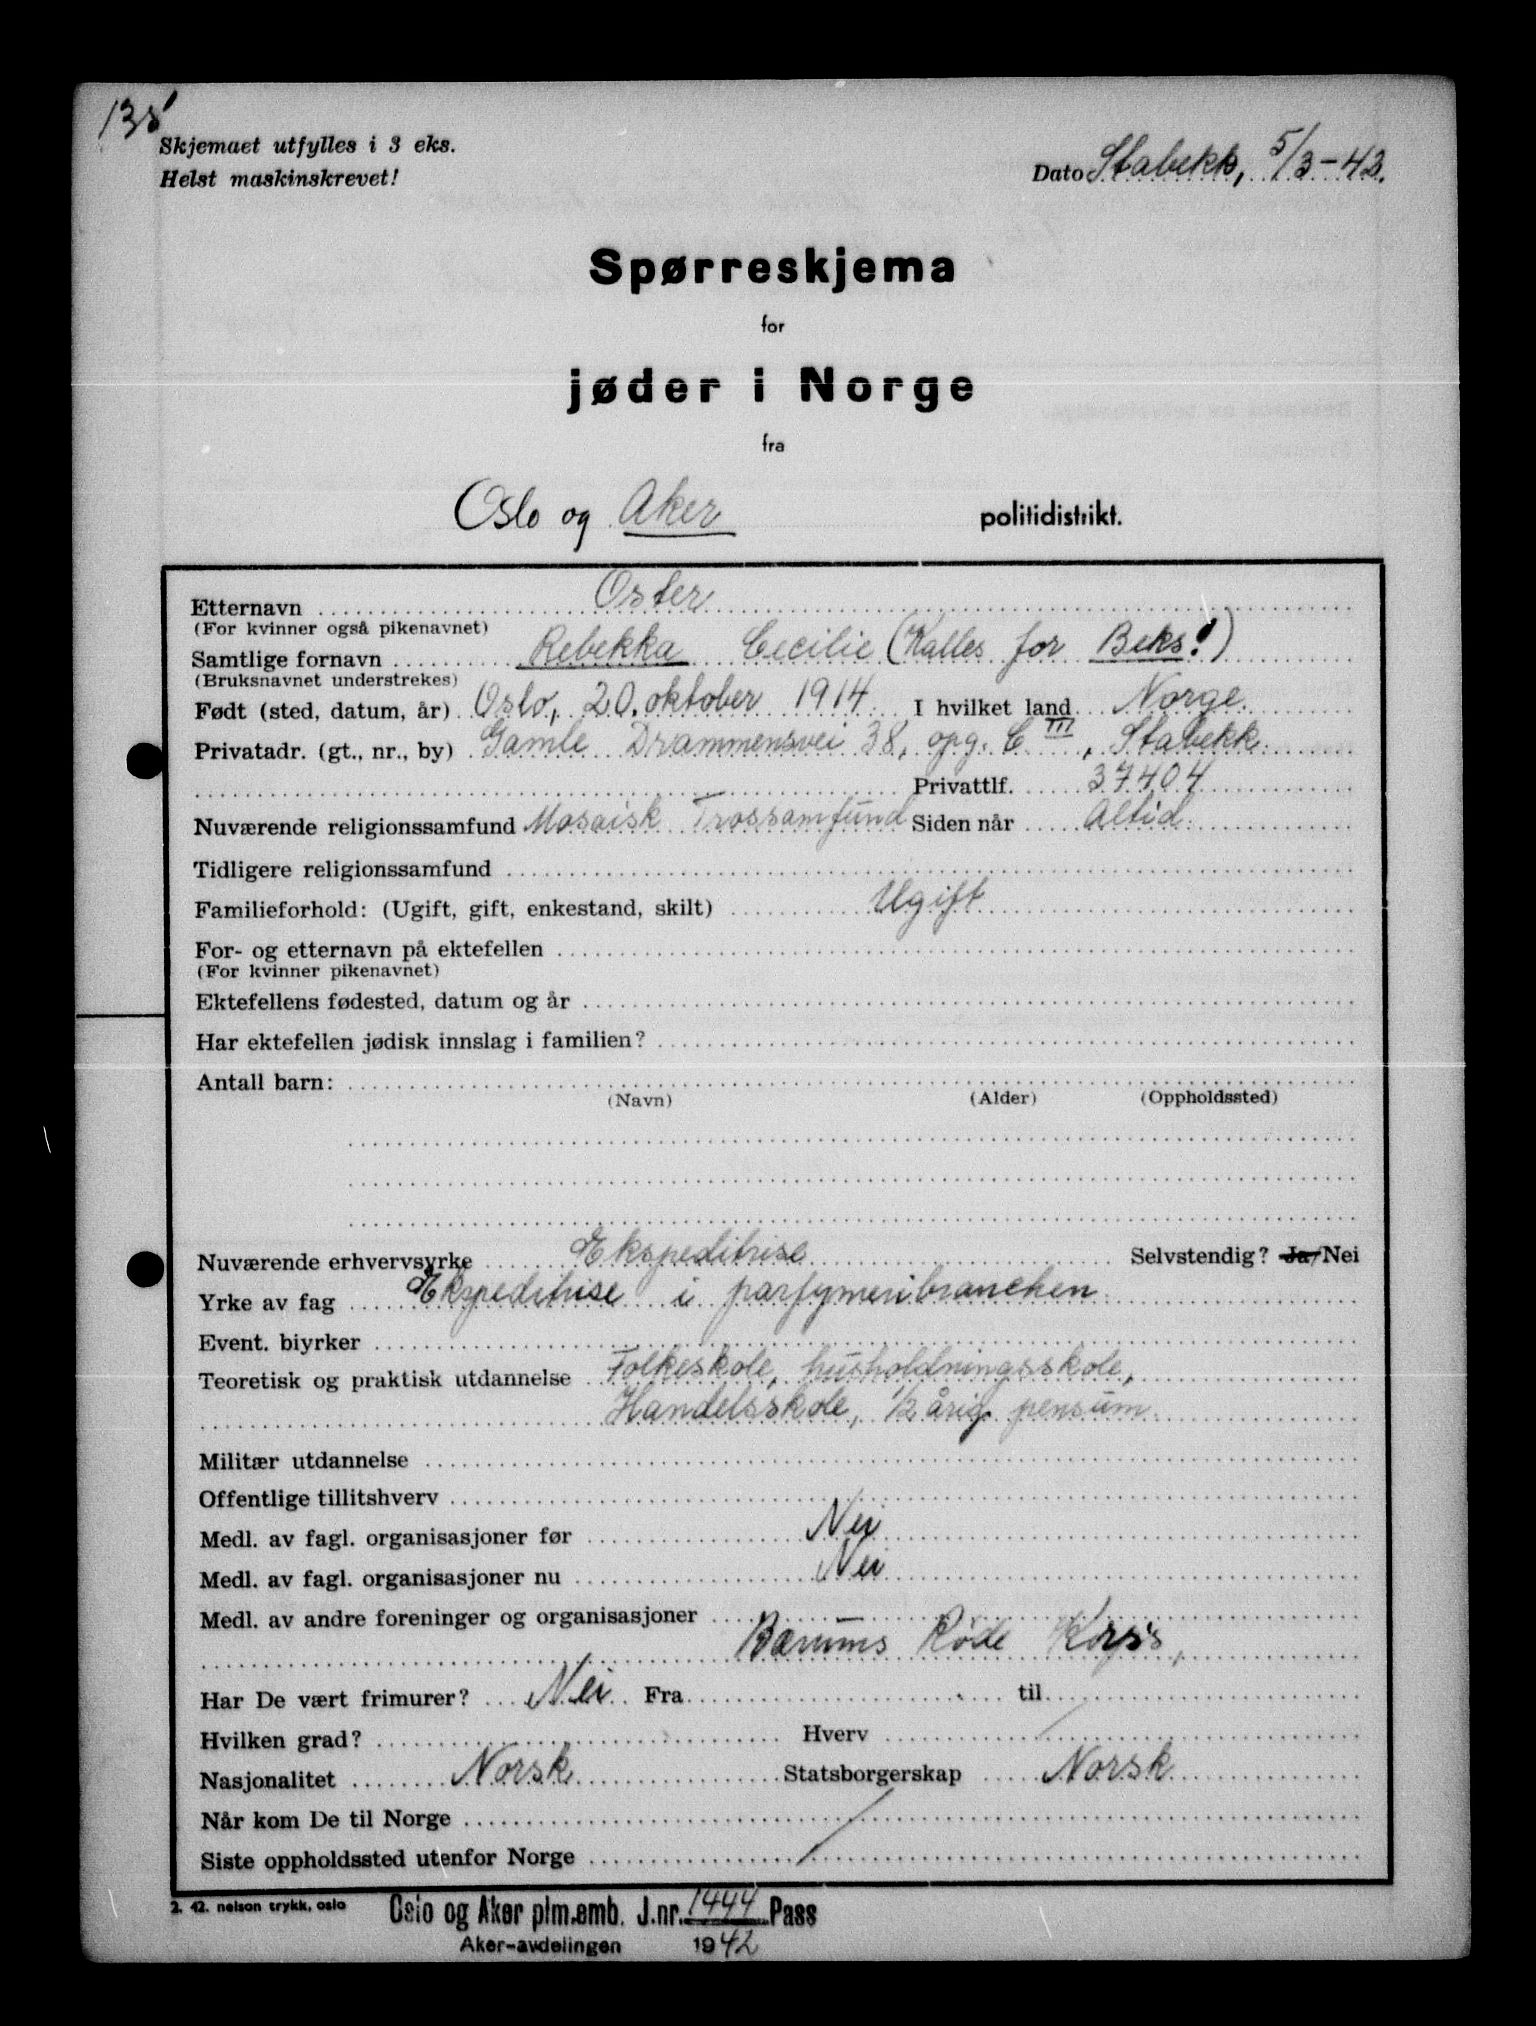 135
Skjemaet utfylles i 3 eks.
Helst maskinskrevet!
Dato Stabekk, 5/3-42.
Spørreskjema
for
jøder i Norge
fra
Oslo og Aker politidistrikt.
Etternavn Oster
(For kvinner også pikenavnet)
Samtlige fornavn Rebekka Cecilie (Kalles for Beks!)
(Bruksnavnet understrekes)
Født (sted, datum, år) Oslo, 20. oktober 1914 I hvilket land Norge.
Privatadr. (gt., nr., by) Gamle Drammensvei 38, opg. C III, Stabekk.
Privattlf. 37404
Nuværende religionssamfund Mosaisk Trossamfund Siden når Altid.
Tidligere religionssamfund
Familieforhold: (Ugift, gift, enkestand, skilt) Ugift
For- og etternavn på ektefellen
(For kvinner pikenavnet)
Ektefellens fødested, datum og år
Har ektefellen jødisk innslag i familien?
Antall barn:
(Navn) (Alder) (Oppholdssted)
Nuværende erhvervsyrke Ekspeditrise Selvstendig? Ja/Nei
Yrke av fag Ekspeditrise i parfymeribranchen.
Event. biyrker
Teoretisk og praktisk utdannelse Folkeskole, husholdningsskole,
Handelsskole, 1/2 årig pensum.
Militær utdannelse
Offentlige tillitshverv
Medl. av fagl. organisasjoner før Nei
Medl. av fagl. organisasjoner nu Nei
Medl. av andre foreninger og organisasjoner
Bærums Røde Kors,
Har De vært frimurer? Nei Fra til
Hvilken grad? Hverv
Nasjonalitet Norsk Statsborgerskap Norsk
Når kom De til Norge
Siste oppholdssted utenfor Norge
2. 42. nelson trykk, oslo
Oslo og Aker plm.emb. J.nr. 1444 Pass
Aker-avdelingen 1942